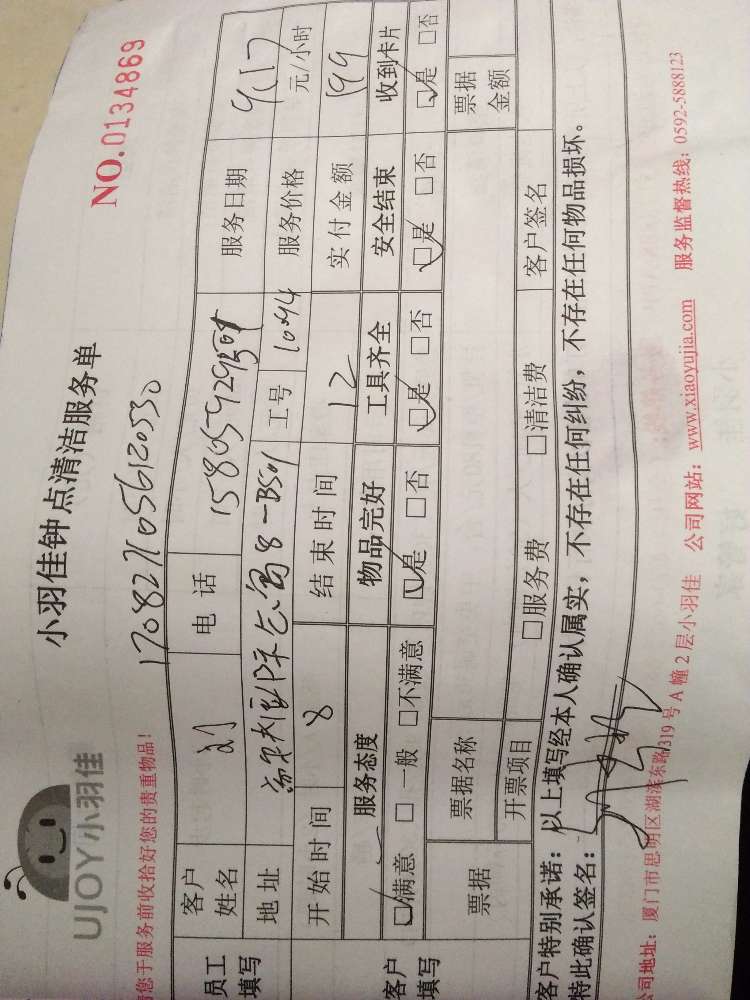 UJOY小羽佳
小羽佳钟点清洁服务单
NO.0134869
您于服务前收拾好您的贵重物品！
员工填写
客户姓名 刘 电话 服务日期 9.17
地址 工号 1094 服务价格 元/小时
开始时间 8 结束时间 12 实付金额 199
客户填写
服务态度 物品完好 工具齐全 安全结束 收到卡片
☑满意 □一般 □不满意 ☑是 □否 ☑是 □否 ☑是 □否 ☑是 □否
票据 票据名称 票据金额
开票项目 □服务费 □清洁费 客户签名
客户特别承诺：以上填写经本人确认属实，不存在任何纠纷，不存在任何物品损坏。
特此确认签名：
公司地址：厦门市思明区湖滨东路319号A幢2层小羽佳 公司网站：www.xiaoyujia.com 服务监督热线：0592-5888123